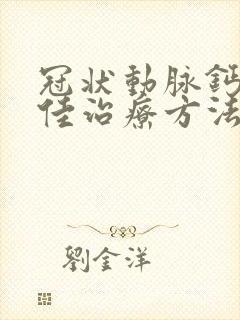 冠状動脉鈣
佳治療方法
劉金洋